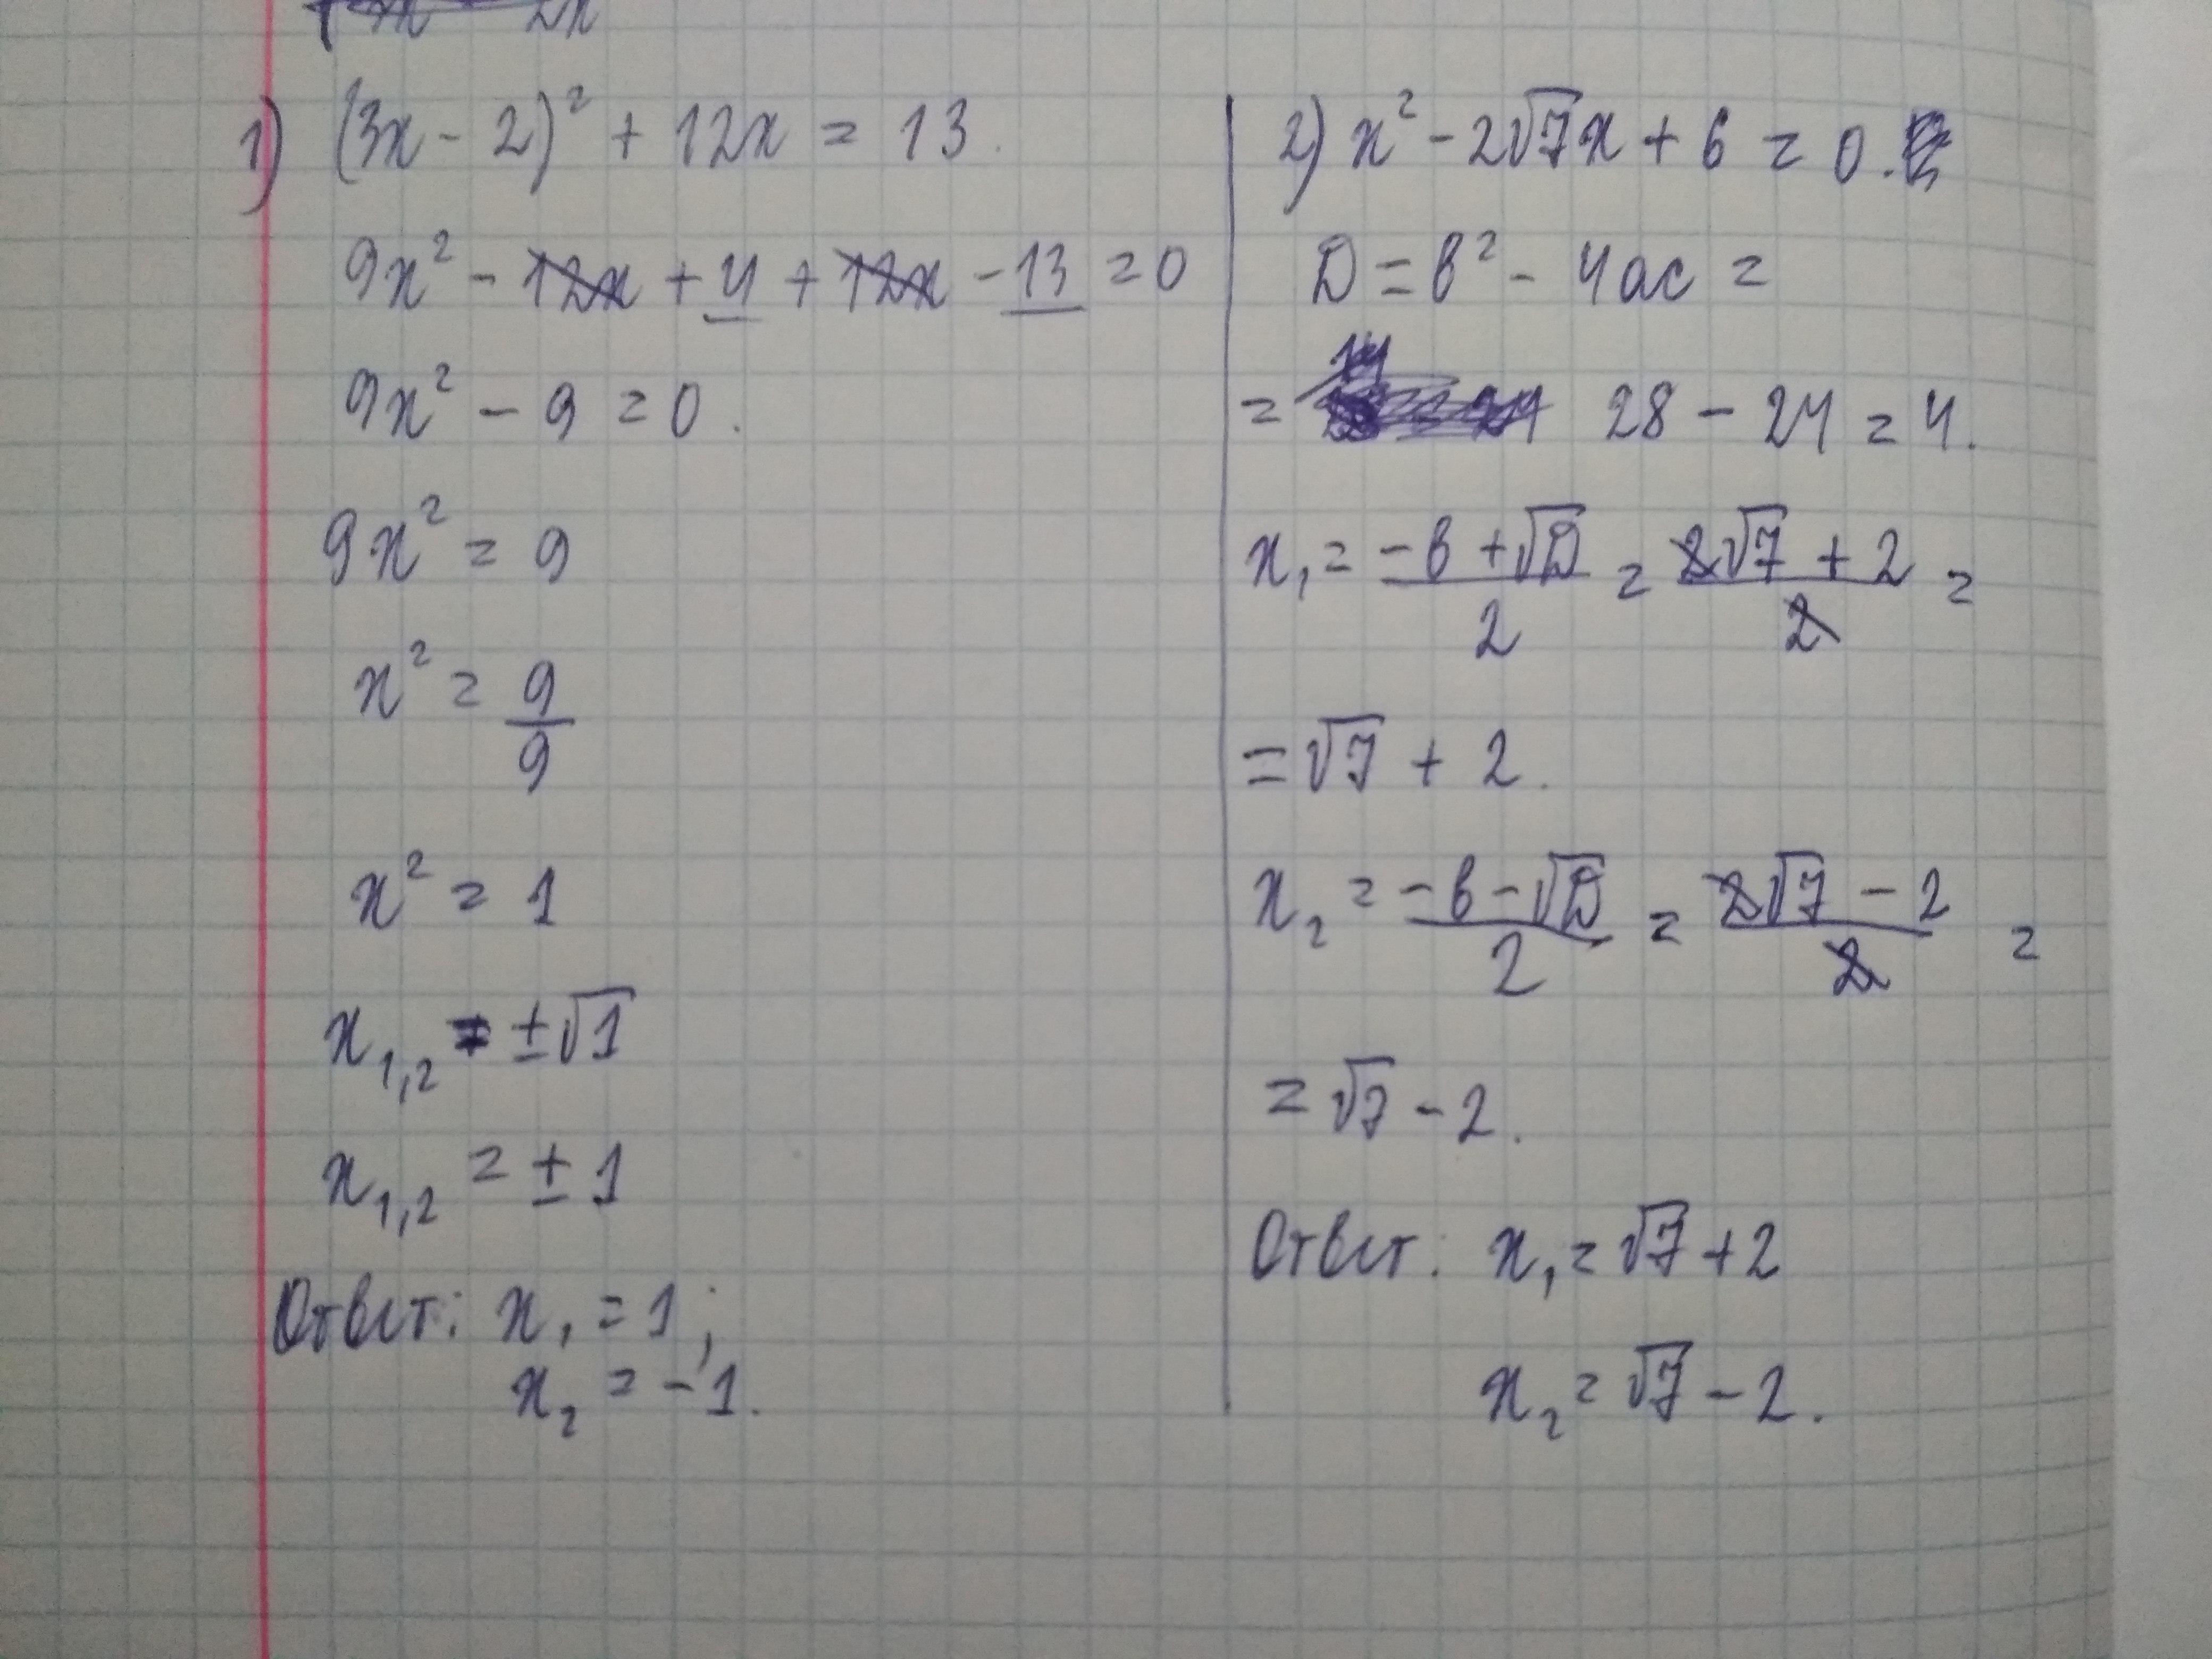 1) (3x - 2)² + 12x = 13.
9x² - 12x + 4 + 12x - 13 = 0
9x² - 9 = 0.
9x² = 9
x² = 9/9
x² = 1
x₁,₂ = ±√1
x₁,₂ = ± 1
Ответ: x₁ = 1;
x₂ = -1.
2) x² - 2√7x + 6 = 0.
D = b² - 4ac =
= 28 - 24 = 4.
x₁ = (-b + √D)/2 = (2√7 + 2)/2 =
= √7 + 2.
x₂ = (-b - √D)/2 = (2√7 - 2)/2 =
= √7 - 2.
Ответ: x₁ = √7 + 2
x₂ = √7 - 2.